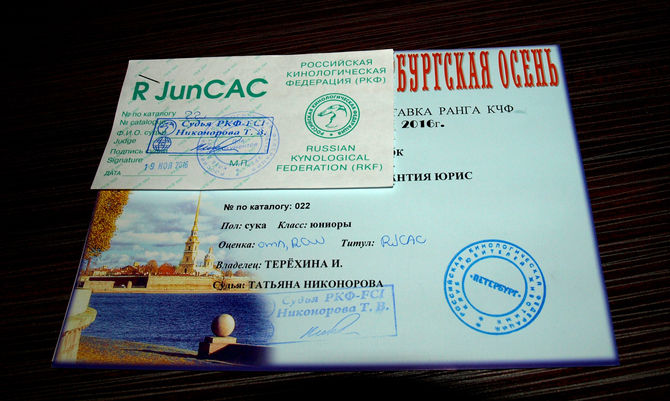 R JunCAC
РОССИЙСКАЯ
КИНОЛОГИЧЕСКАЯ
ФЕДЕРАЦИЯ (РКФ)
№ по каталогу 22
№ catalog
Ф.И.О. судьи
Judge
Подпись
Signature
ДАТА 19 НОЯ 2016
М.П.
Судья РКФ-FCI
Никонорова Т. В.
RUSSIAN
KYNOLOGICAL
FEDERATION (RKF)
БУРГСКАЯ ОСЕНЬ
ТАВКА РАНГА КЧФ
2016г.
ОК
НТИЯ ЮРИС
№ по каталогу: 022
Пол: сука Класс: юниоры
Оценка: отл, ROW Титул: RJCAC
Владелец: ТЕРЁХИНА И.
Судья: ТАТЬЯНА НИКОНОРОВА
Судья РКФ-FCI
Никонорова Т. В.
РОССИЙСКАЯ КИНОЛОГИЧЕСКАЯ ФЕДЕРАЦИЯ
"ПЕТЕРБУРГ"